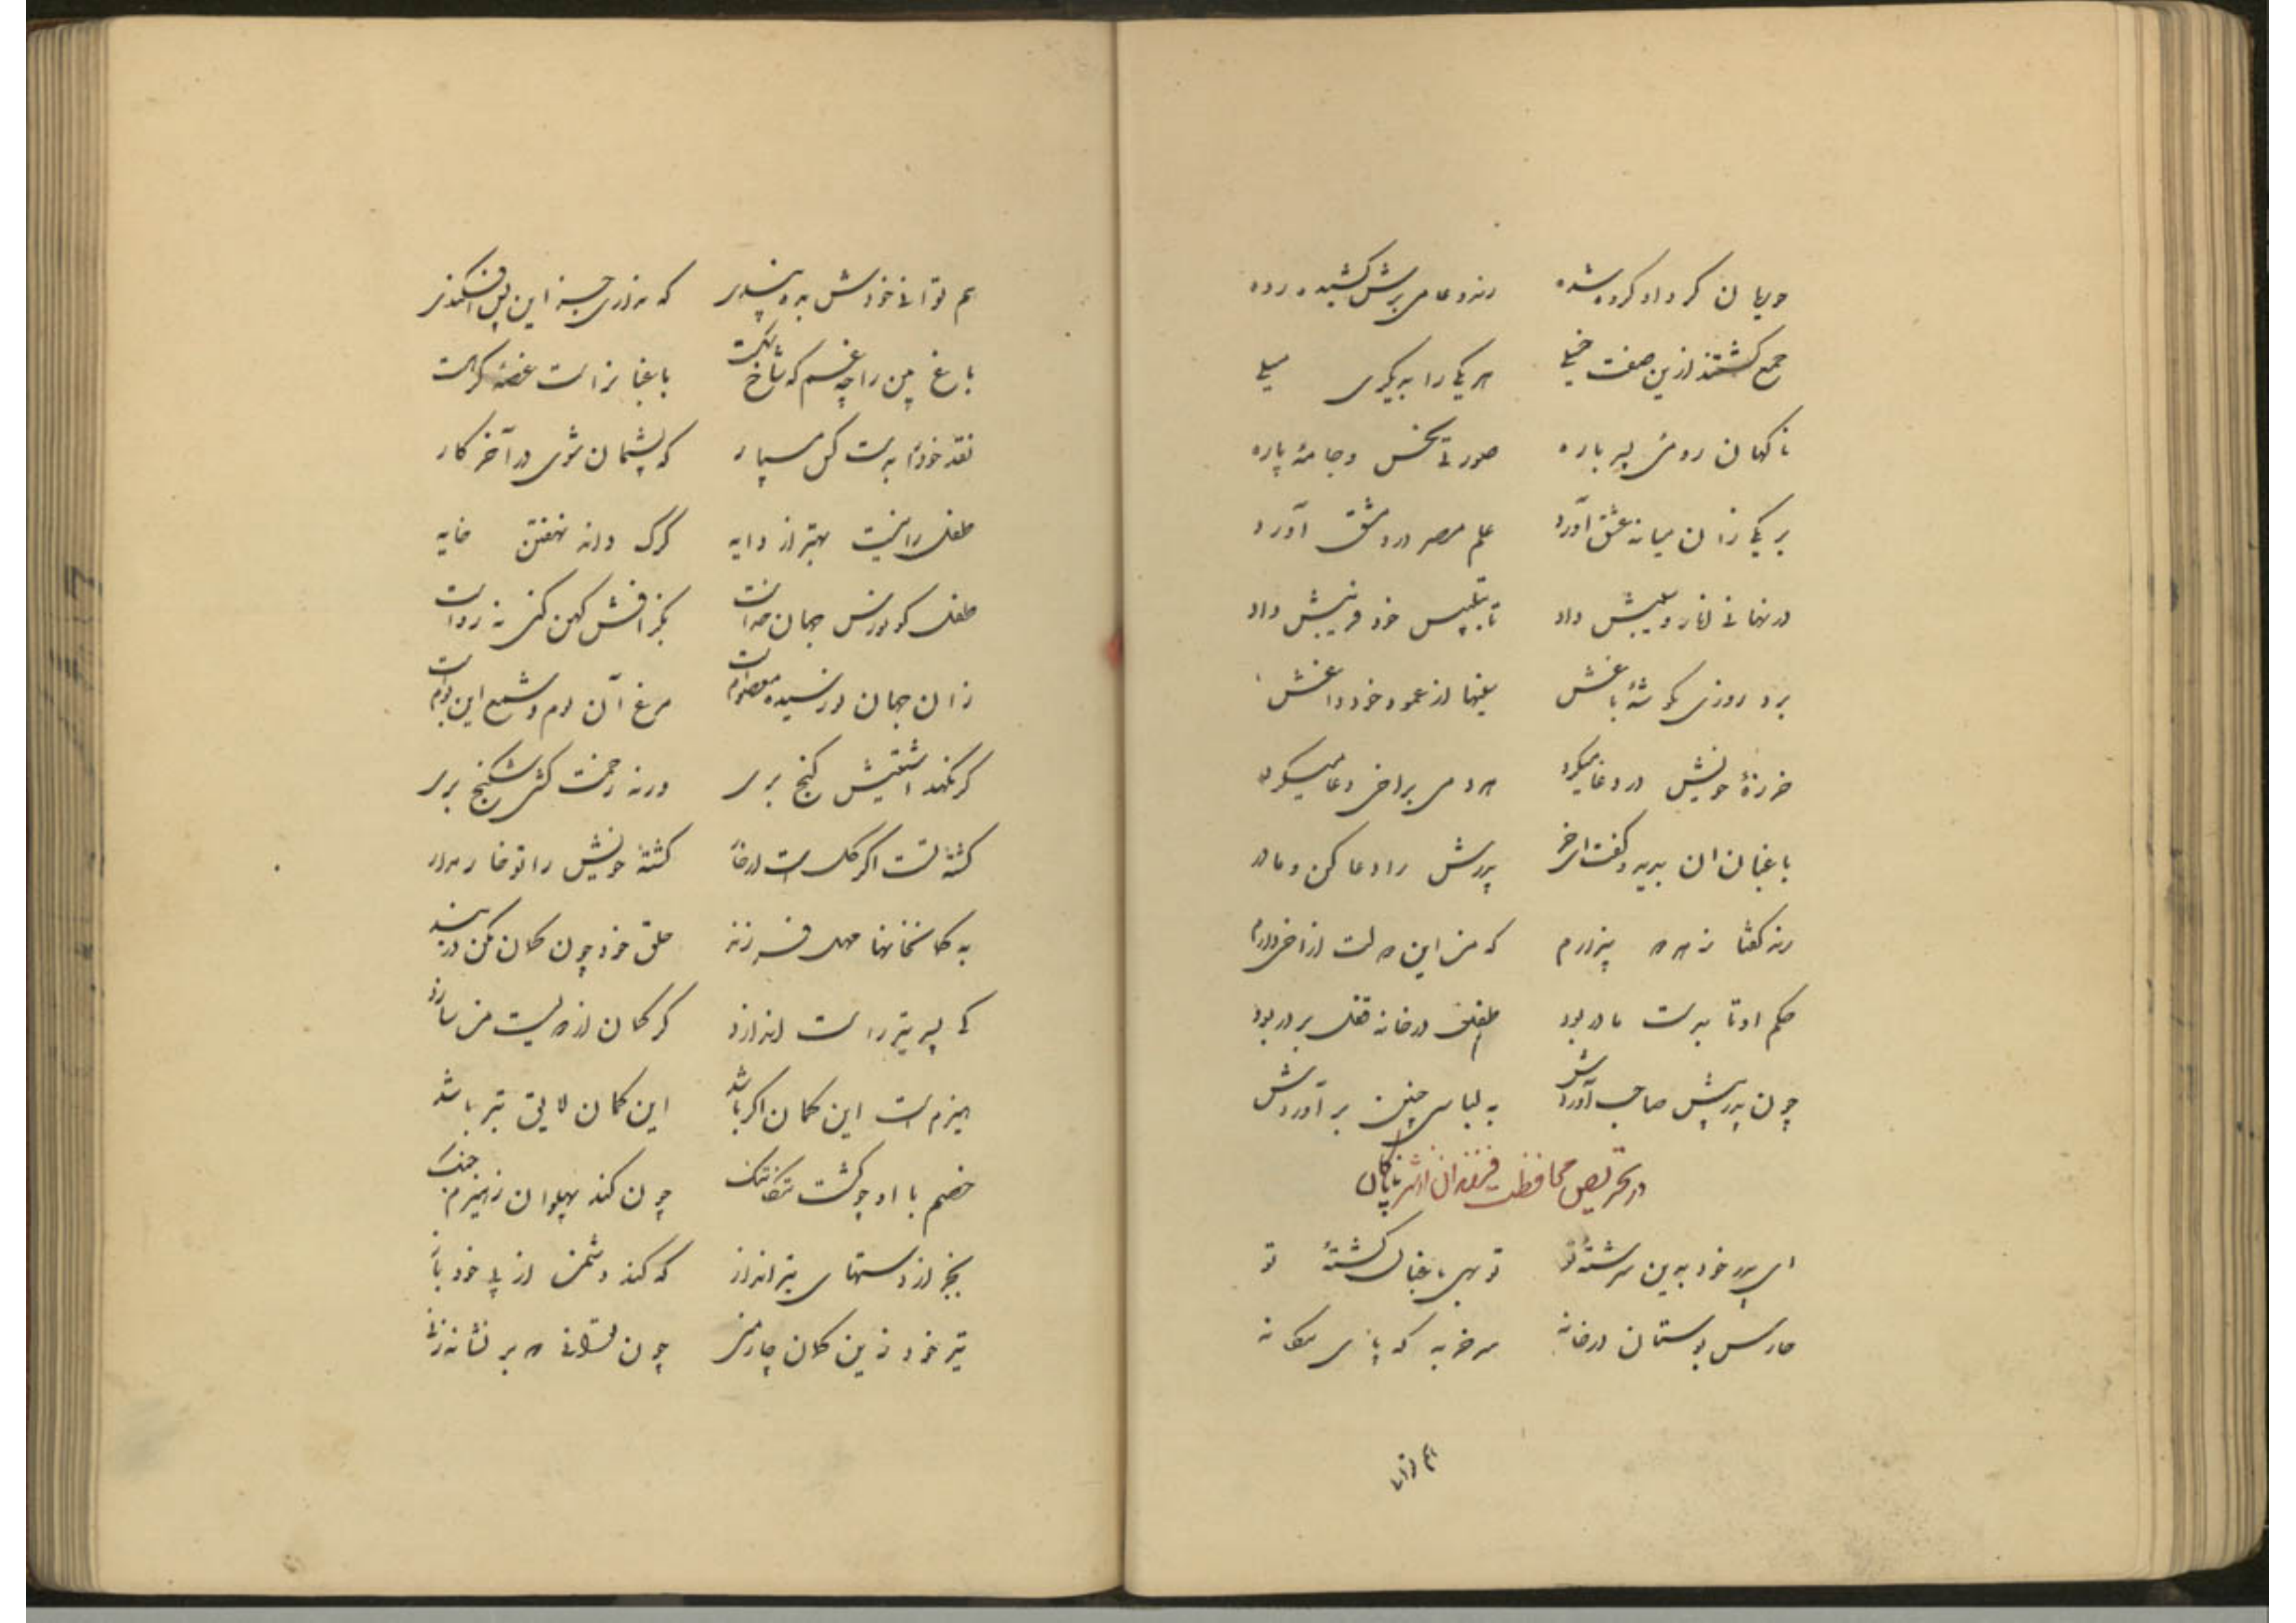 جمع گشتند ازین صفت خیلی هر یکی را به دیگری میلی
ناگهان رومی پسر باره صورتی نحس و جامهٔ پاره
بر یکی زان میانه عشق آورد علم مصر در دمشق آورد
در نهانی داد تا بتلبیس خود فریبش داد
برد روزی بگوشهٔ باغش
خرزهٔ خویش در دعا میکرد هر دمی بر اخی دعا میکرد
باغبان آن بدید و گفت ای خر پدرش را دعا کن و مادر
رند گفتا ز هر دو بیزارم که من این دولت از اخی دارم
حکم او تا بدست مادر بود طفل در خانه قفل بر در بود
چون پدر پیش صاحب آوردش به لباسی چنین بر آوردش
در تحریص محافظت فرزندان از شر ناپاکان
ای پدر خود بدین سرشتهٔ تو تو بهی باغبان کشتهٔ تو
حارس بوستان در خانه سر خر به که پای بیگانه
هم توانی
هم توانی خودش به ره سپری که
باغ من را چه غم که شاخ شکست باغبانراست غصه گر هست
نقد خود را بدست کس مسپار که پشیمان شوی در آخر کار
طفل را نیست بهتر از دایه گرگ داند نهفتن خایه
طفل کو نورس جهان خداست بگزافش کهن کنی نه رواست
زان جهان در رسیده معصوم است مرغ آن دم و شمع این بوم است
گر نگهداشتیش گنج بری ور نه زحمت کشی شکنج بری
کشتهٔ تست اگر گل است ار خار کشتهٔ خویش را تو خار مدار
به کمانخانها مهل فرزند حلق خود چون کمان مکن در بند
کی پسر تیر راست اندازد گر کمان از دویست من سازد
هیزم است این کمان اگر باشد این کمان لایق تبر باشد
خصم با او چو گشت تنگاتنگ چون کند پهلوان ز هیزم جنگ
بجز از دستهای تیر انداز که کند دشمن از پی خود باز
تیر خود زین کمان چار منی چون توانی که بر نشانه زنی